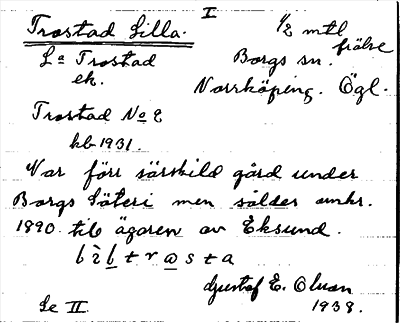 I
Trostad Lilla. 1/2 mtl
frälse
La Trostad Borgs sn.
ek. Norrköping. Ögl.
Trostad No 2
kb 1931.
Var förr särskild gård under
Borgs Säteri men såldes omkr.
1890 till ägaren av Eksund.
Gustaf E. Olson
Se II. 1938.